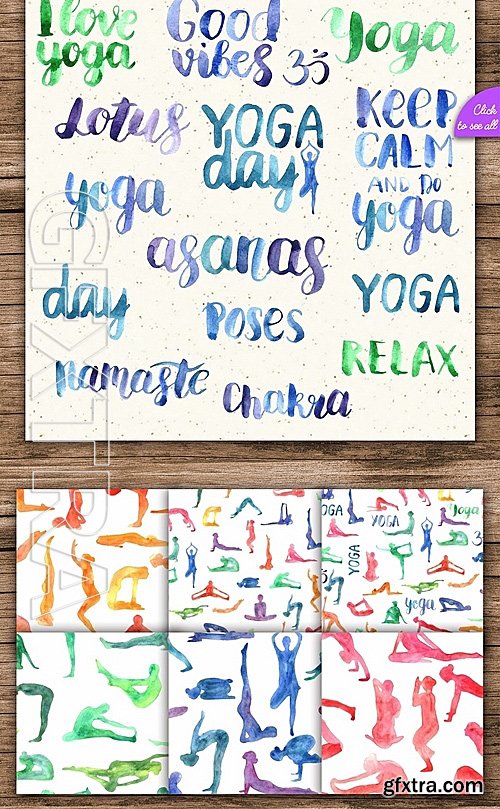 I love
yoga
Good
vibes ॐ
Yoga
Click
to see all
Lotus
YOGA
day
KEEP
CALM
AND DO
yoga
yoga
asanas
day
YOGA
poses
RELAX
Namaste
Chakra
GFXTRA
YOGA
YOGA
Yoga
YOGA
3ॐ
yoga
gfxtra.com